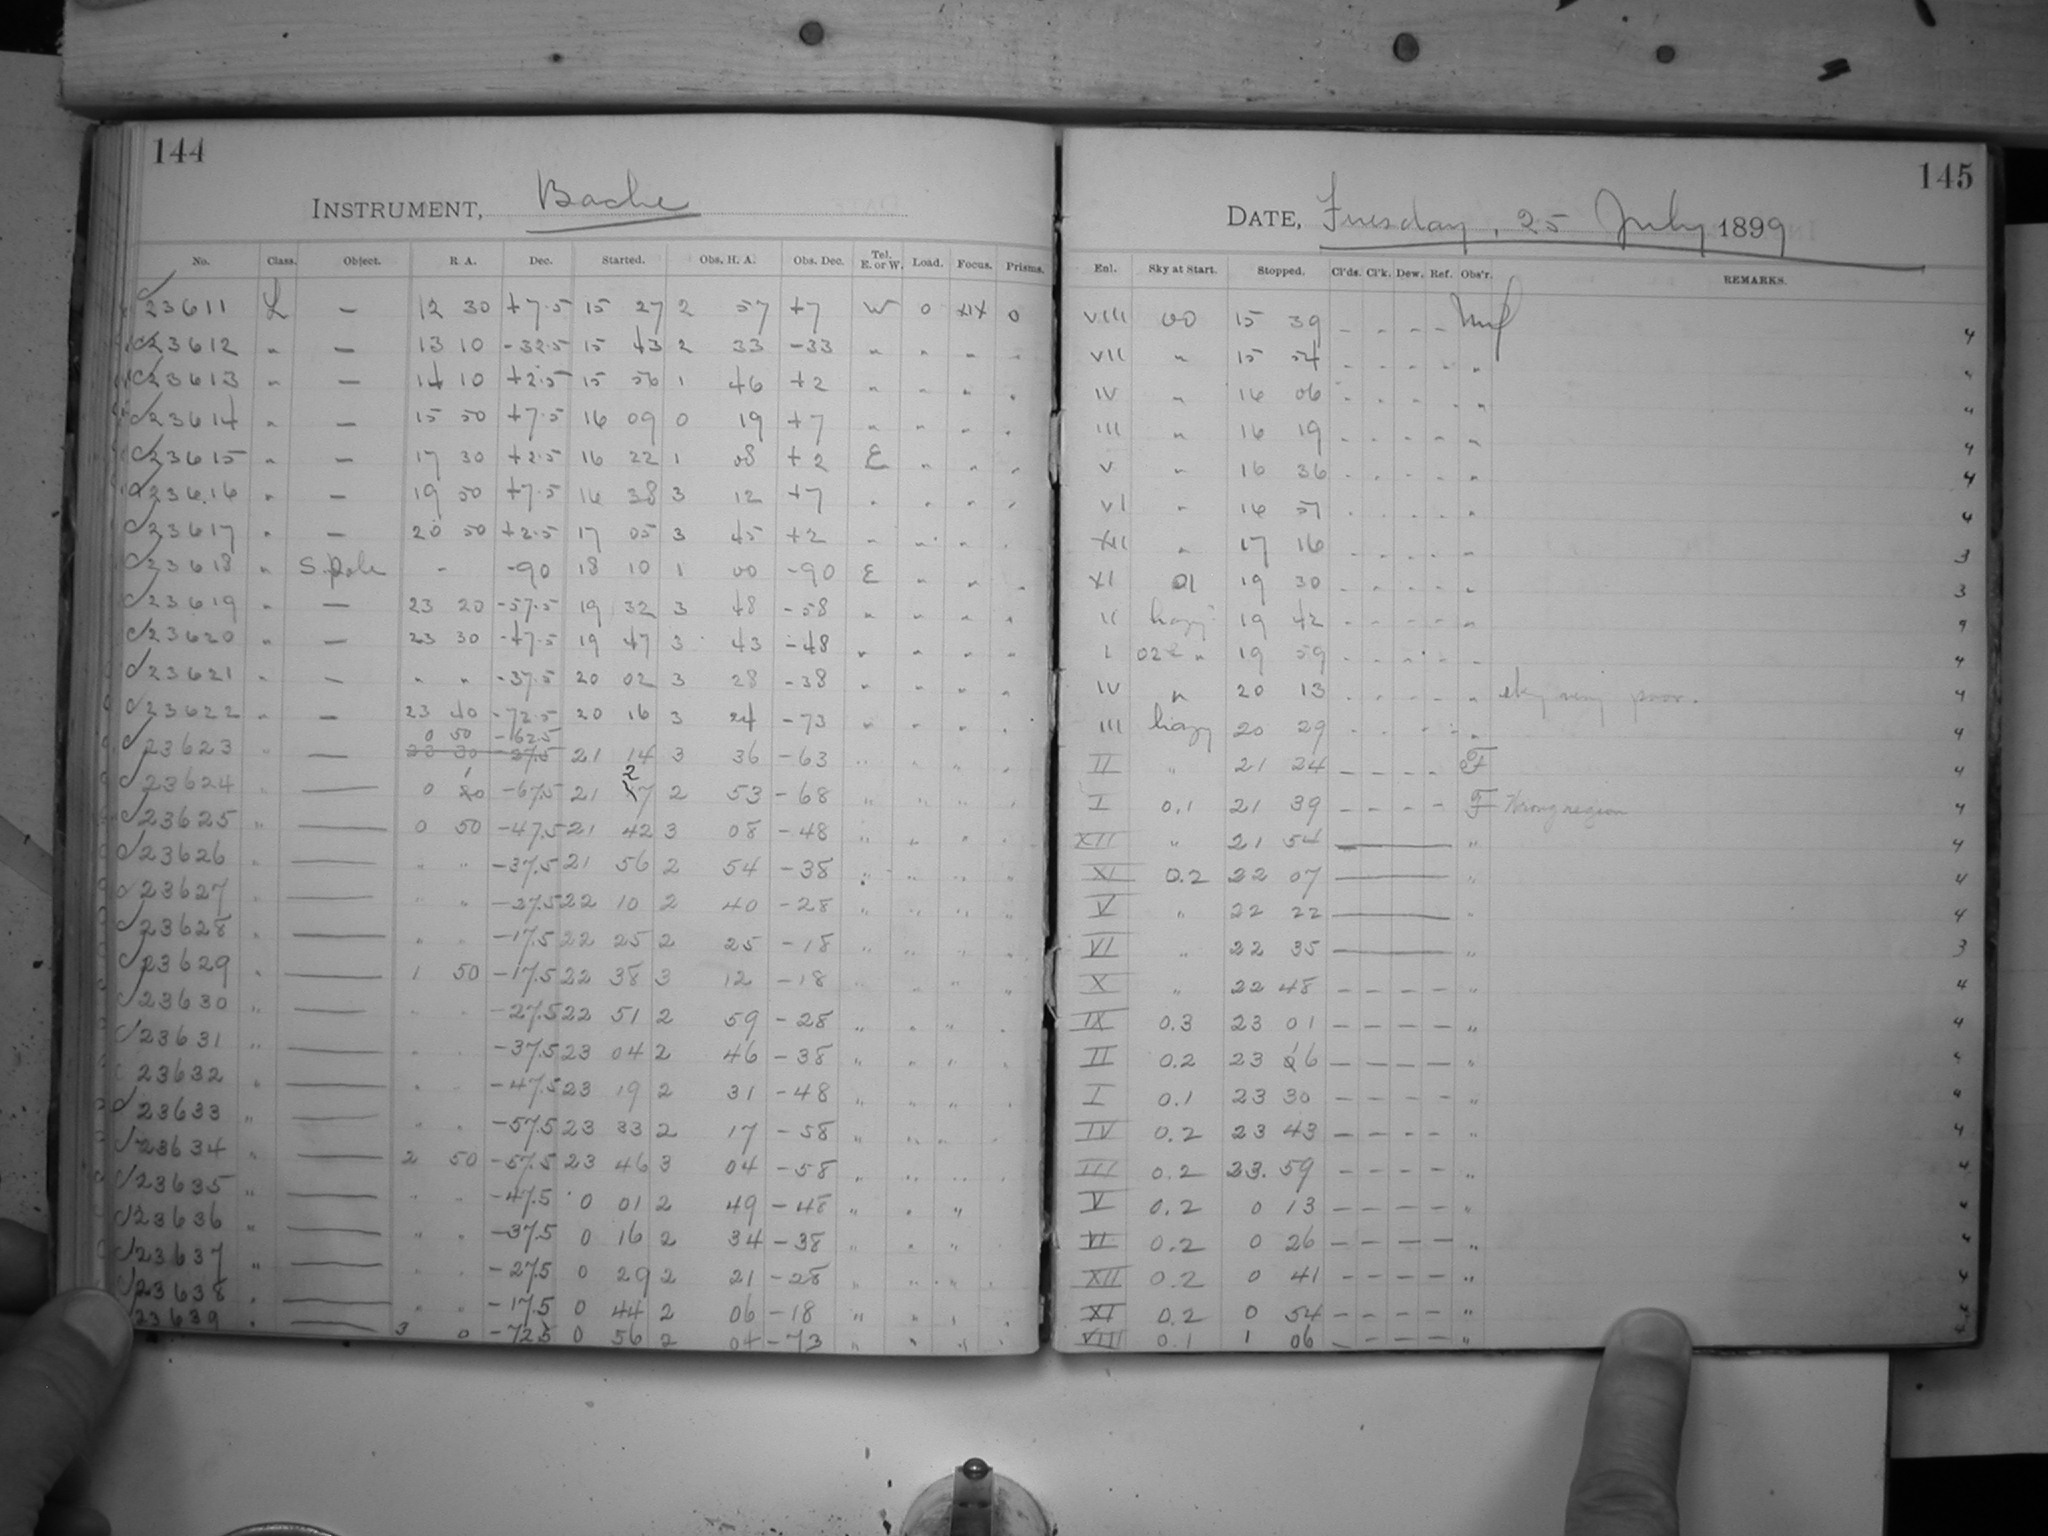 144
INSTRUMENT, Bache
No. Class. Object. R. A. Dec. Started. Obs. H. A. Obs. Dec. Tel. E. or W. Load. Focus. Prisms.
23611 L — 12 30 +7.5 15 27 2 57 +7 W 0 XIX 0
23612 " — 13 10 -32.5 15 43 2 33 -33 " " " "
23613 " — 14 10 +2.5 15 56 1 46 +2 " " " "
23614 " — 15 50 +7.5 16 09 0 19 +7 " " " "
23615 " — 17 30 +2.5 16 22 1 08 +2 E " " "
23616 " — 19 50 +7.5 16 38 3 12 +7 " " " "
23617 " — 20 50 +2.5 17 05 3 45 +2 " " " "
23618 " S. pole - -90 18 10 1 00 -90 E " " "
23619 " — 23 20 -57.5 19 32 3 48 -58 " " " "
23620 " — 23 30 -47.5 19 47 3 43 -48 " " " "
23621 " — " " -37.5 20 02 3 28 -38 " " " "
23622 " — 23 40 -72.5 20 16 3 24 -73 " " " "
0 50 -62.5
23623 " — 23 30 -27.5 21 14 3 36 -63 " " " "
23624 " 0 10 -67.5 21 27 2 53 -68 " " " "
23625 " — 0 50 -47.5 21 42 3 08 -48 " " " "
23626 " — " " -37.5 21 56 2 54 -38 " " " "
23627 " — " " -27.5 22 10 2 40 -28 " " " "
23628 " — " " -17.5 22 25 2 25 -18 " " " "
23629 " — 1 50 -17.5 22 38 3 12 -18 " " " "
23630 " — " " -27.5 22 51 2 59 -28 " " " "
23631 " — " " -37.5 23 04 2 46 -38 " " " "
23632 " — " " -47.5 23 19 2 31 -48 " " " "
23633 " — " " -57.5 23 33 2 17 -58 " " " "
23634 " — 2 50 -57.5 23 46 3 04 -58 " " " "
23635 " — " " -47.5 0 01 2 49 -48 " " "
23636 " — " " -37.5 0 16 2 34 -38 " " "
23637 " — " " -27.5 0 29 2 21 -28 " " " "
23638 " — " " -17.5 0 44 2 06 -18 " " " "
23639 " — 3 0 -72.5 0 56 2 04 -73 " " " "
145
DATE, Tuesday, 25 July 1899
Enl. Sky at Start. Stopped. Cl'ds. Cl'k. Dew. Ref. Obs'r. REMARKS.
VIII 00 15 39 - - - - 4
VII " 15 54 - - - - " "
IV " 16 06 - - - - " "
III " 16 19 - - - - " 4
V " 16 36 - - - - " 4
VI " 16 51 - - - - " 4
XII " 17 16 - - - - " 3
XI 01 19 30 - - - - " 3
II hazy 19 42 - - - - "
I 02 " 19 59 - - - - " 4
IV " 20 13 - - - - " sky very poor. 4
III hazy 20 29 - - - - " 4
II " 21 24 - - - - F 4
I 0.1 21 39 - - - - F Wrong region 4
XII " 21 54 — " 4
XI 0.2 22 07 — " 4
V " 22 22 — " 4
VI " 22 35 — " 3
X " 22 48 - - - - " 4
IX 0.3 23 01 - - - - " 4
II 0.2 23 16 - - - - "
I 0.1 23 30 - - - - "
IV 0.2 23 43 - - - - " 4
III 0.2 23.59 - - - - " 4
V 0.2 0 13 - - - - "
VI 0.2 0 26 - - - - " 4
XII 0.2 0 41 - - - - " 4
XI 0.2 0 54 - - - - "
VIII 0.1 1 06 - - - - "